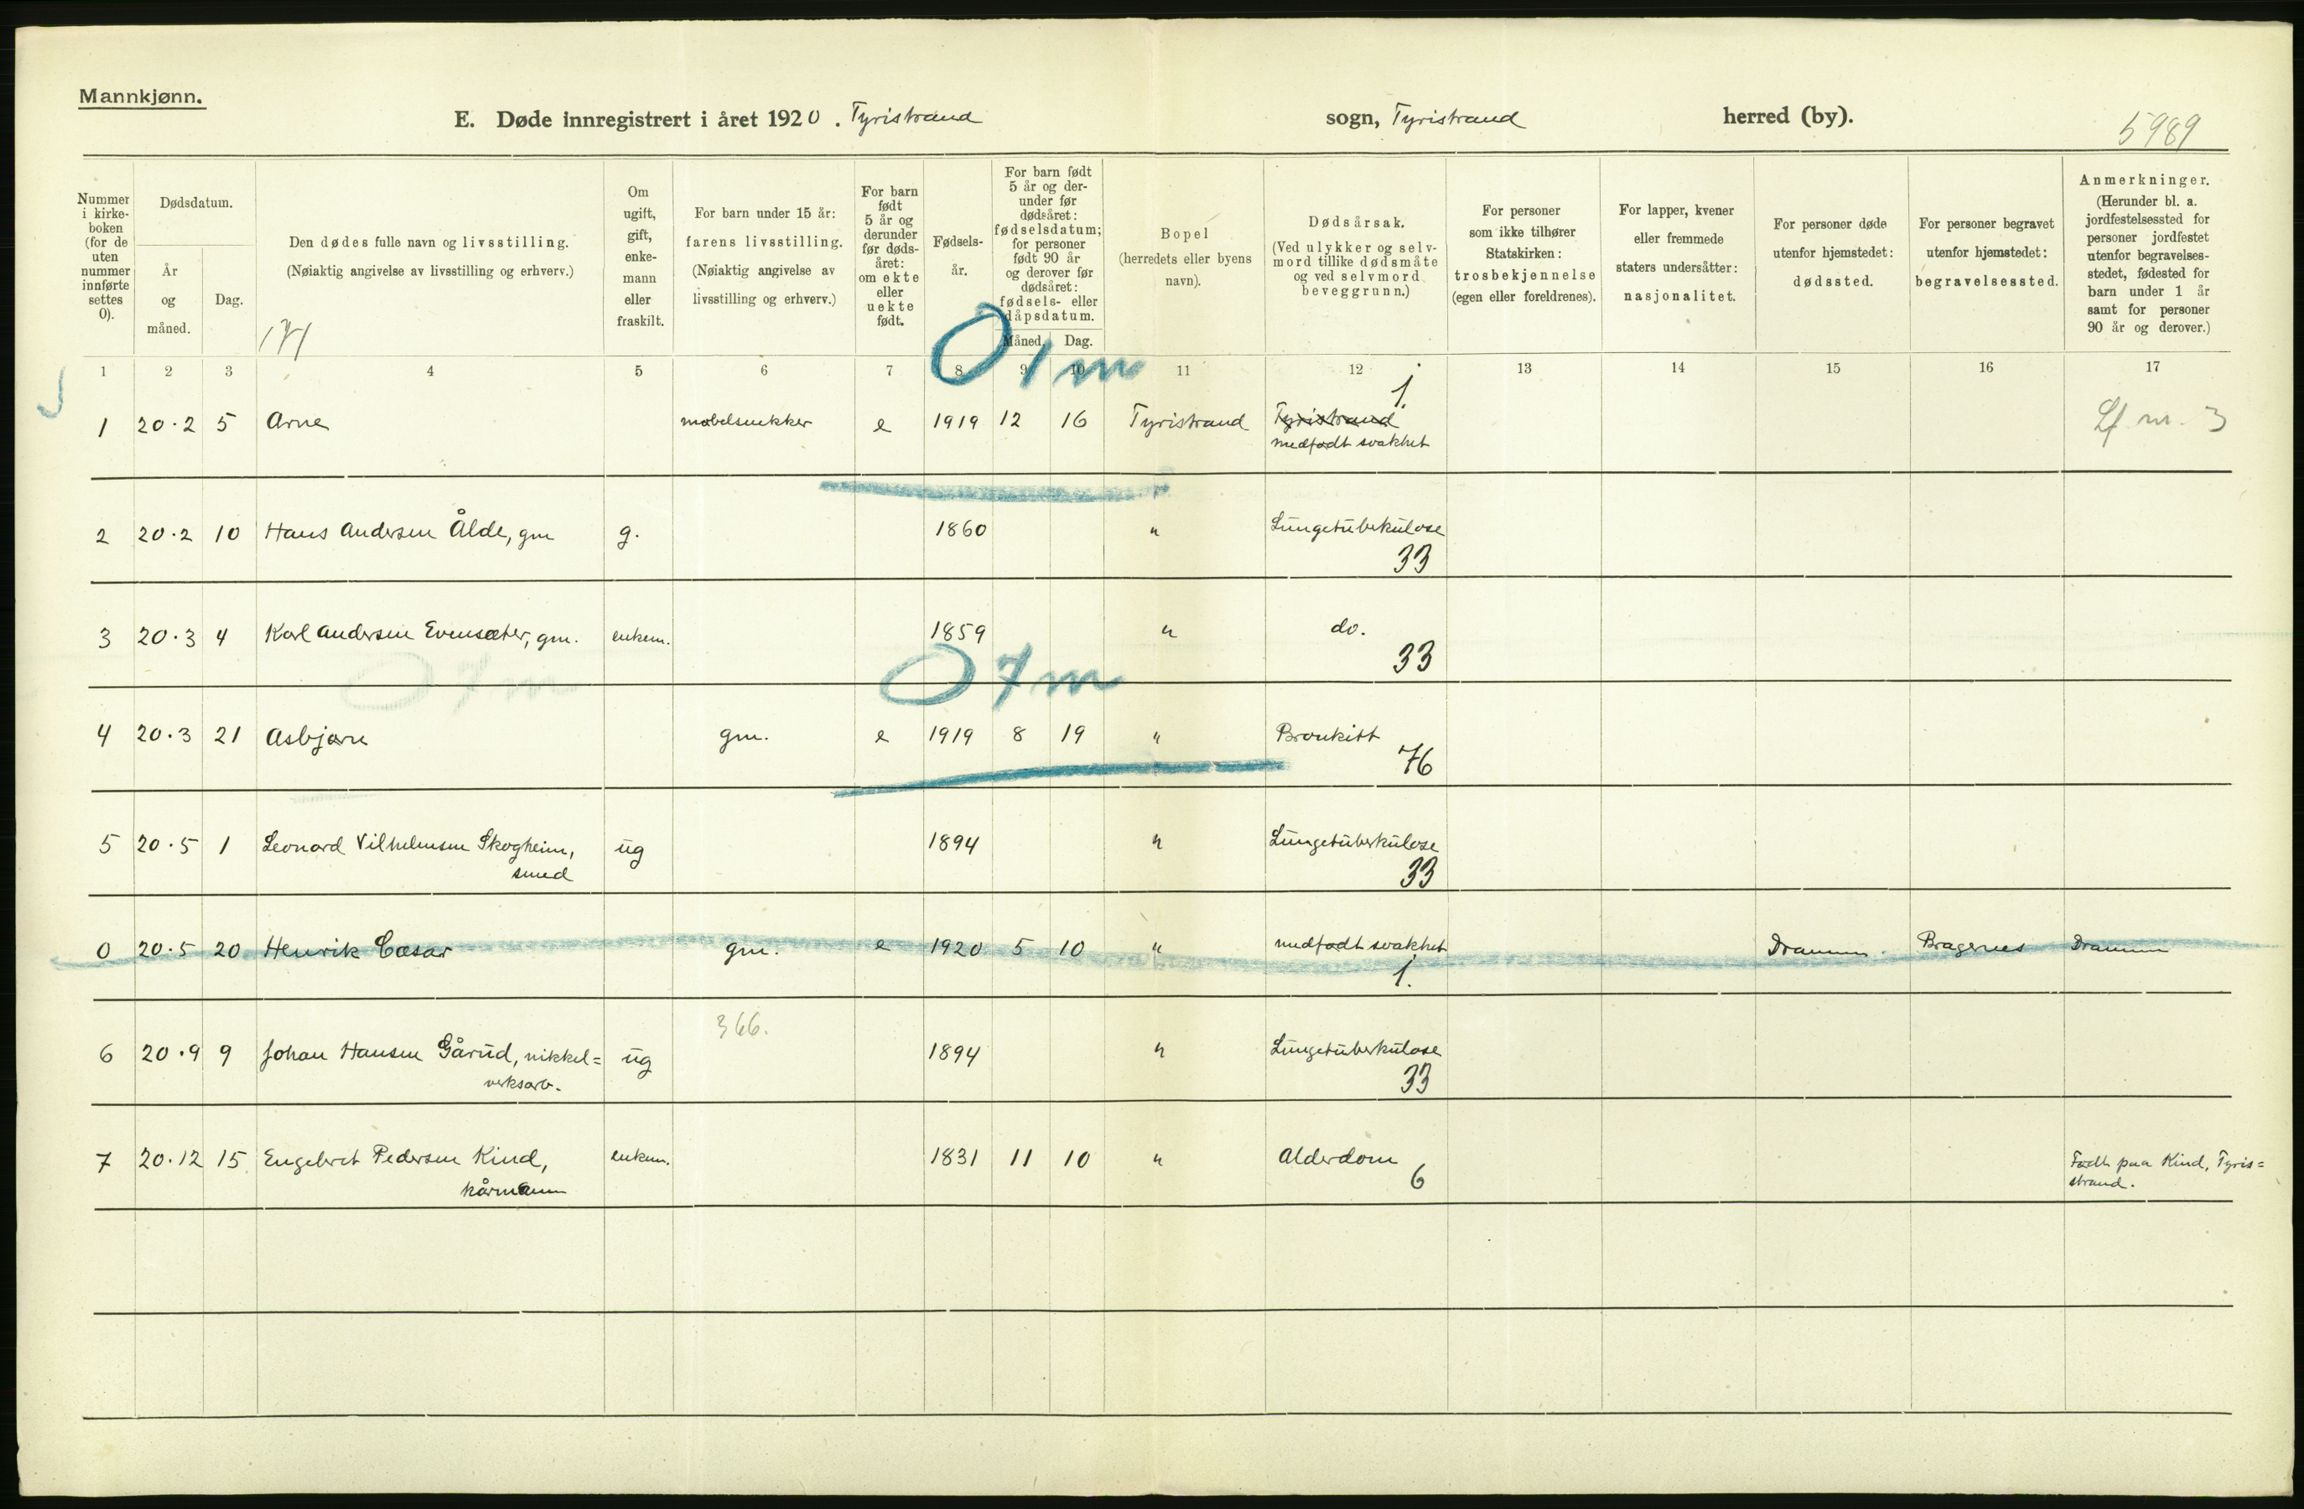 Mannkjønn.
E. Døde innregistrert i året 1920. Tyristrand sogn, Tyristrand herred (by).
5989
Nummer i kirke-boken (for de uten nummer innførte settes 0).
Dødsdatum.
År og måned.
Dag.
Den dødes fulle navn og livsstilling.
(Nøiaktig angivelse av livsstilling og erhverv.)
171
Om ugift, gift, enke-mann eller fraskilt.
For barn under 15 år: farens livsstilling.
(Nøiaktig angivelse av livsstilling og erhverv.)
For barn født 5 år og derunder før døds-året: om ekte eller uekte født.
Fødsels-år.
For barn født 5 år og der-under før dødsåret: fødselsdatum; for personer født 90 år og derover før dødsåret: fødsels- eller dåpsdatum.
Måned.
Dag.
Bopel
(herredets eller byens navn).
Dødsårsak.
(Ved ulykker og selv-mord tillike dødsmåte og ved selvmord beveggrunn.)
For personer som ikke tilhører Statskirken: trosbekjennelse (egen eller foreldrenes).
For lapper, kvener eller fremmede staters undersåtter: nasjonalitet.
For personer døde utenfor hjemstedet: dødssted.
For personer begravet utenfor hjemstedet: begravelsessted.
Anmerkninger.
(Herunder bl. a. jordfestelsessted for personer jordfestet utenfor begravelses-stedet, fødested for barn under 1 år samt for personer 90 år og derover.)
1 2 3 4 5 6 7 8 9 10 11 12 13 14 15 16 17
0 1 m
1 20.2 5 Arne møbelsnekker e 1919 12 16 Tyristrand Tyristrand medfødt svakhet 1. Lf. nr. 3
2 20.2 10 Hans Andersen Ålde, gm g. 1860 " Lungetuberkulose 33
3 20.3 4 Karl Andersen Evensæter, gm. enkem. 1859 " do. 33
0 7 m
4 20.3 21 Asbjørn gm. e 1919 8 19 " Bronkitt 76
5 20.5 1 Leonard Vilhelmsen Skogheim, smed ug 1894 " Lungetuberkulose 33
0 20.5 20 Henrik Cæsar gm. e 1920 5 10 " medfødt svakhet 1. Drammen. Bragernes Drammen
366.
6 20.9 9 Johan Hansen Gårud, nikkel=verksarb. ug 1894 " Lungetuberkulose 33
7 20.12 15 Engebret Pedersen Kind, kårmann enkem. 1831 11 10 " Alderdom 6 Født paa Kind, Tyris=strand.